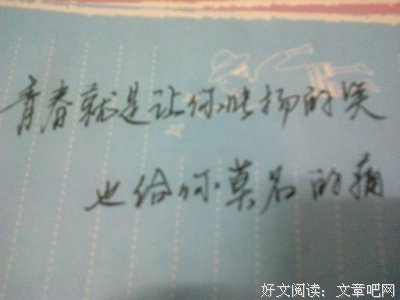 青春就是让你张扬的笑
也给你莫名的痛
好文阅读：文章吧网